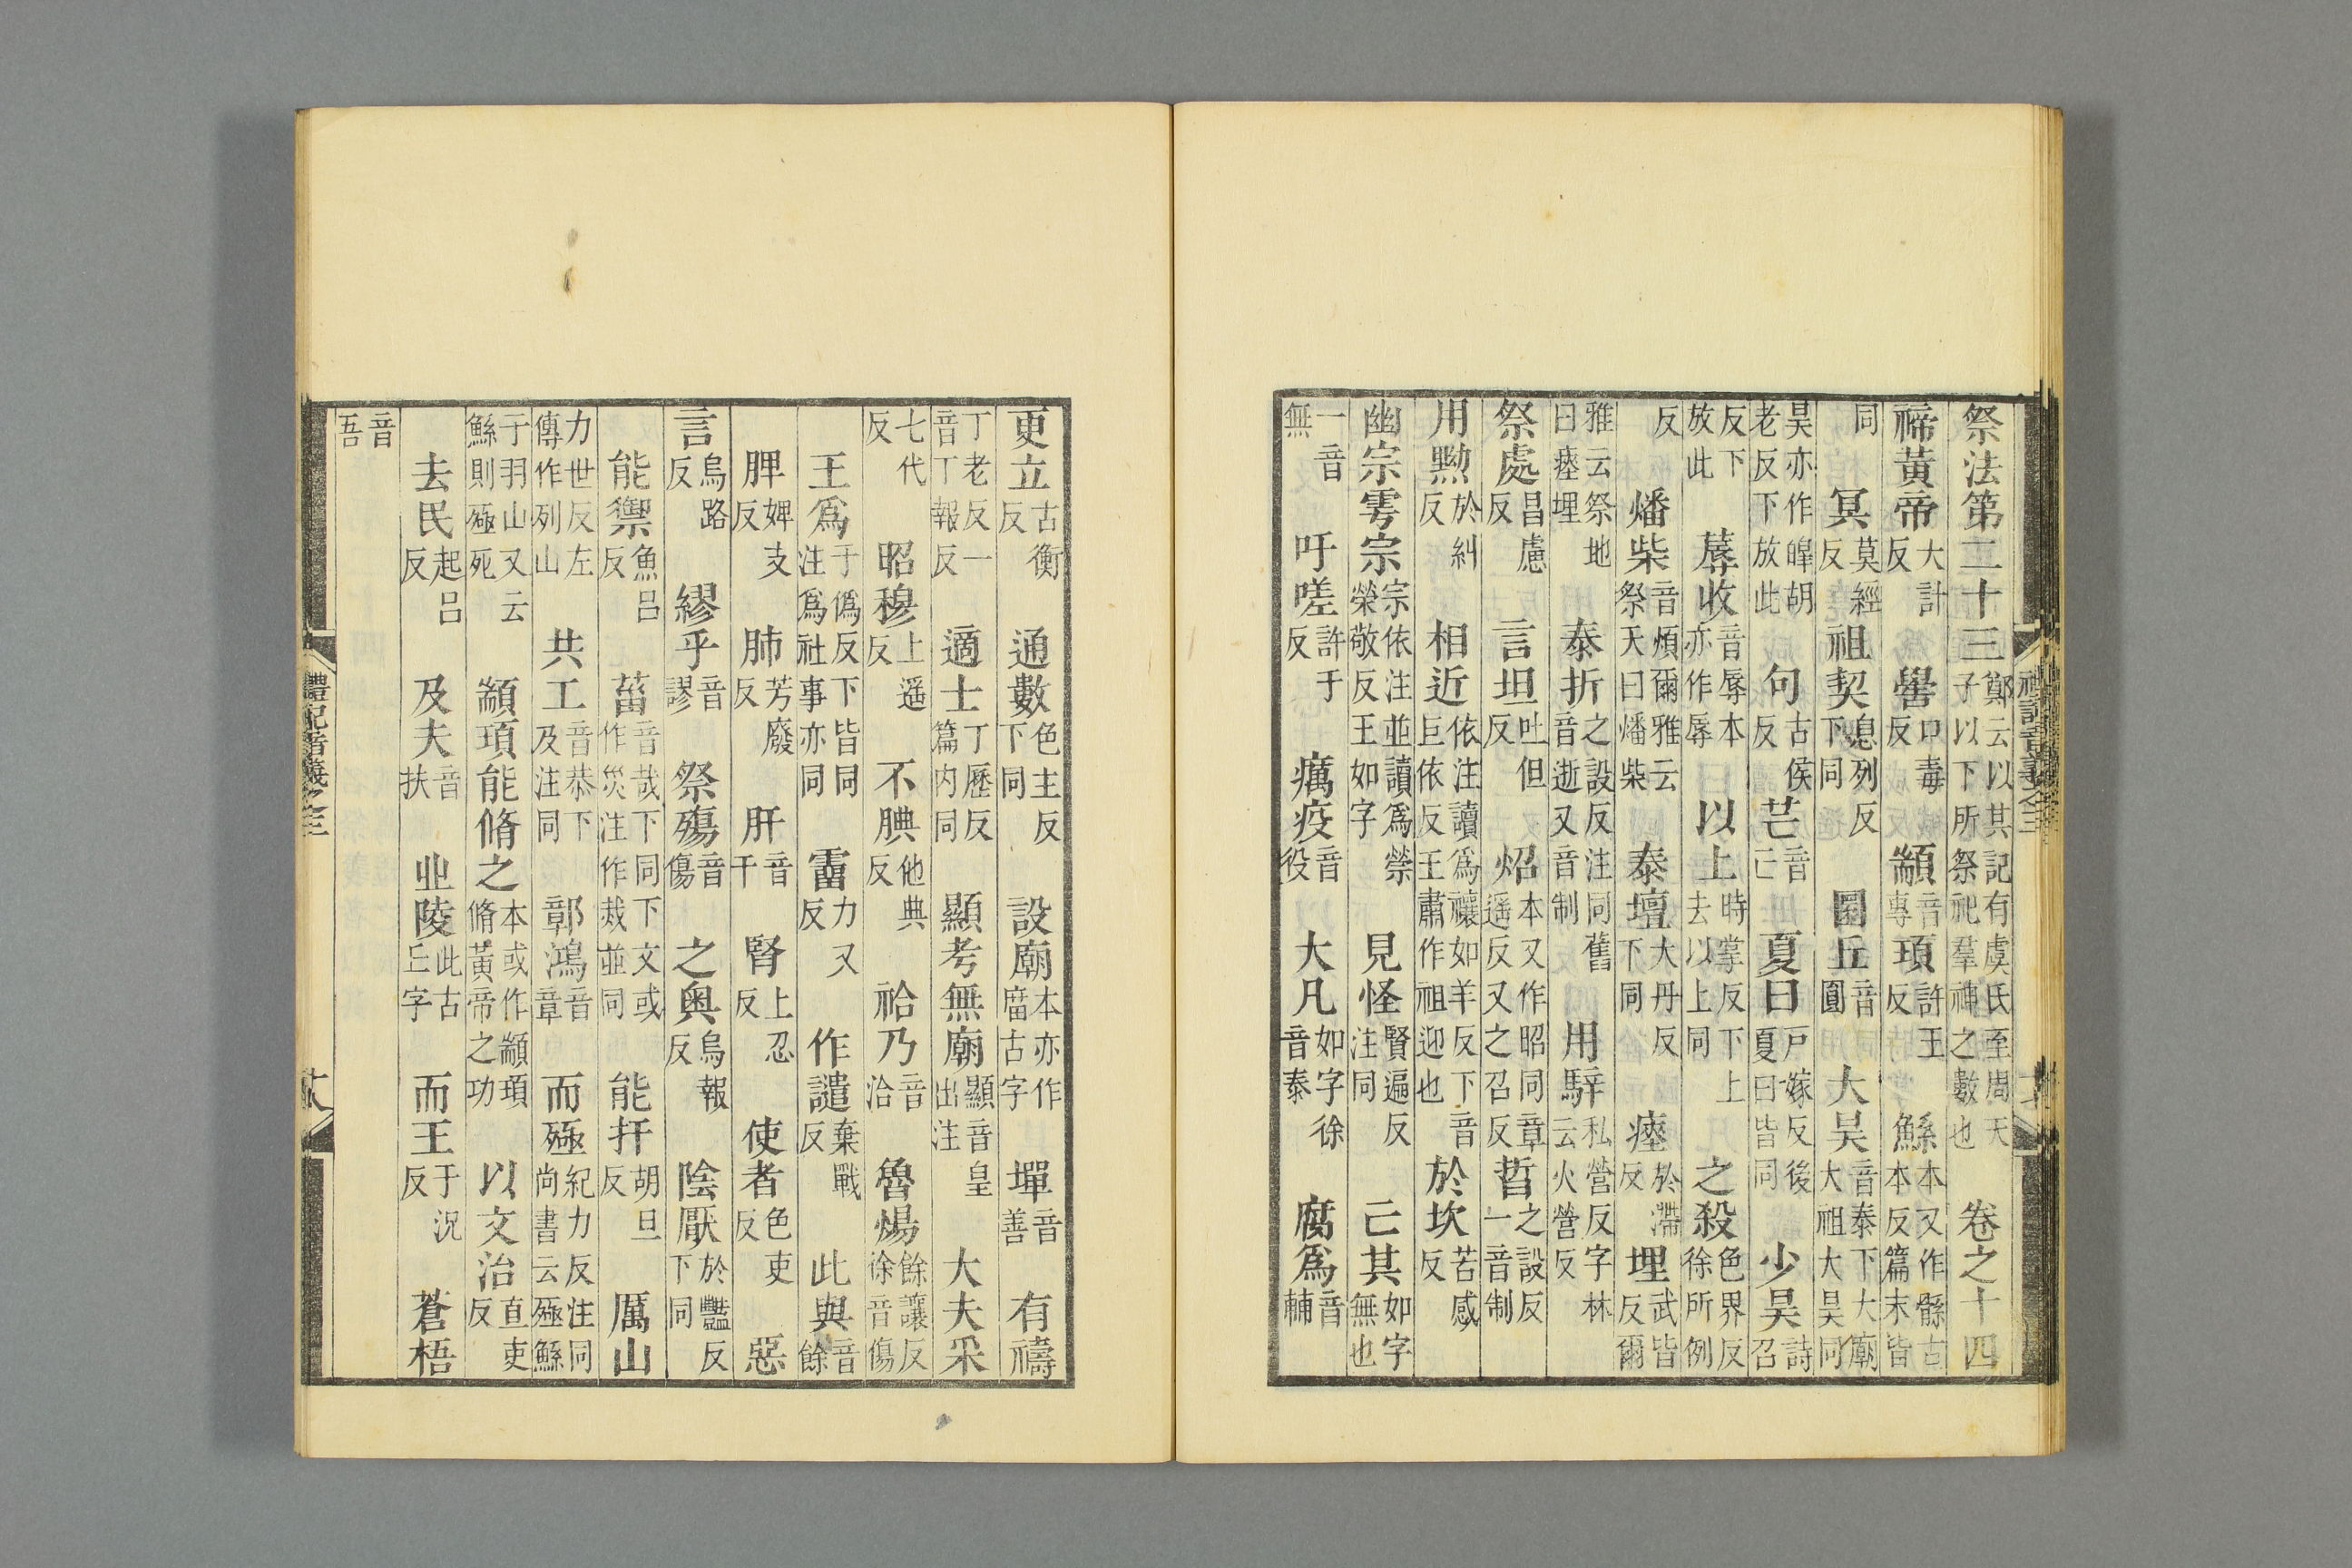 祭法第二十三鄭云以其記有虞氏至周天子以下所祭祀羣神之數也卷之十四
禘黃帝大計反嚳口毒反顓音專頊許王反鯀本又作骸古本反篇末皆
同冥莫經反祖契息列反下同圜丘音圓大昊音泰下大廟大祖大昊同
昊亦作皞胡老反下放此句古侯反芒音亡夏曰戶嫁反後夏曰皆同少昊詩召
反下放此蓐收音辱本亦作辱以上時掌反下上去以上同之殺色界反徐所例
反燔柴音煩爾雅云祭天曰燔柴泰壇大丹反下同瘞於滯反埋武皆反爾
雅云祭地曰瘞埋泰折之設反注同舊音逝又音制用騂私營反字林云火營反
祭處昌慮反言坦吐但反炤本又作昭同章遥反又之召反晢之設反一音制
用黝於糾反相近依注讀爲禳如羊反下音巨依反王肅作祖迎也於坎苦感反
幽宗雩宗宗依注並讀爲禜榮敬反王如字見怪賢遍反注同亡其如字無也
一音無吁嗟許于反癘疫音役大凡如字徐音泰腐爲音輔
更立古衡反通數色主反下同設廟本亦作庿古字墠音善有禱
丁老反一音丁報反適士丁歷反篇内同顯考無廟顯音皇出注大夫采
七代反昭穆上遥反不腆他典反祫乃音洽魯煬餘讓反徐音傷
王爲于僞反下皆同注爲社事亦同霤力又反作譴棄戰反此與音餘
脾婢支反肺芳廢反肝音干腎上忍反使者色吏反惡
言烏路反繆乎音謬祭殤音傷之奥烏報反陰厭於豔反下同
能禦魚呂反菑音哉下同下文或作災注作裁並同能扞胡旦反厲山
力世反左傳作列山共工音恭下及注同鄣鴻音章而殛紀力反注同尚書云殛鯀
于羽山又云鯀則殛死顓頊能脩之本或作顓頊脩黃帝之功以文治直吏反
去民起呂反及夫音扶丠陵此古丘字而王于況反蒼梧
音吾
禮記音義之三
十八